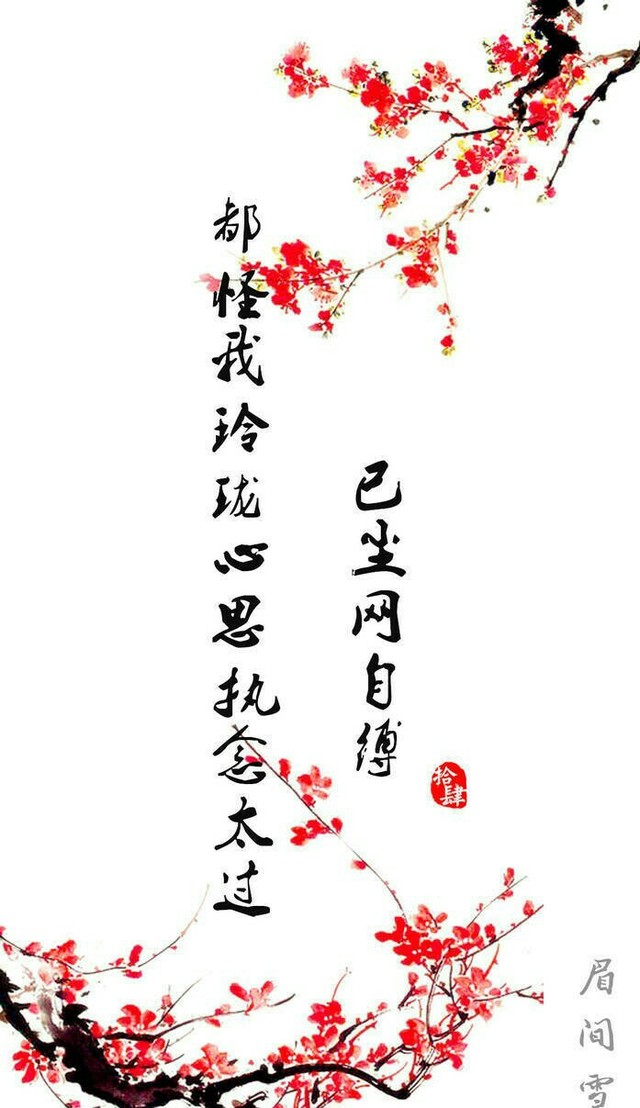 都怪我玲珑心思执念太过
已尘网自缚
拾肆
眉间雪